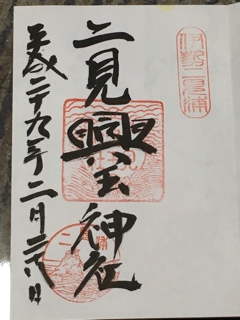 伊勢二見浦
二見興玉神社
平成二十九年二月二六日